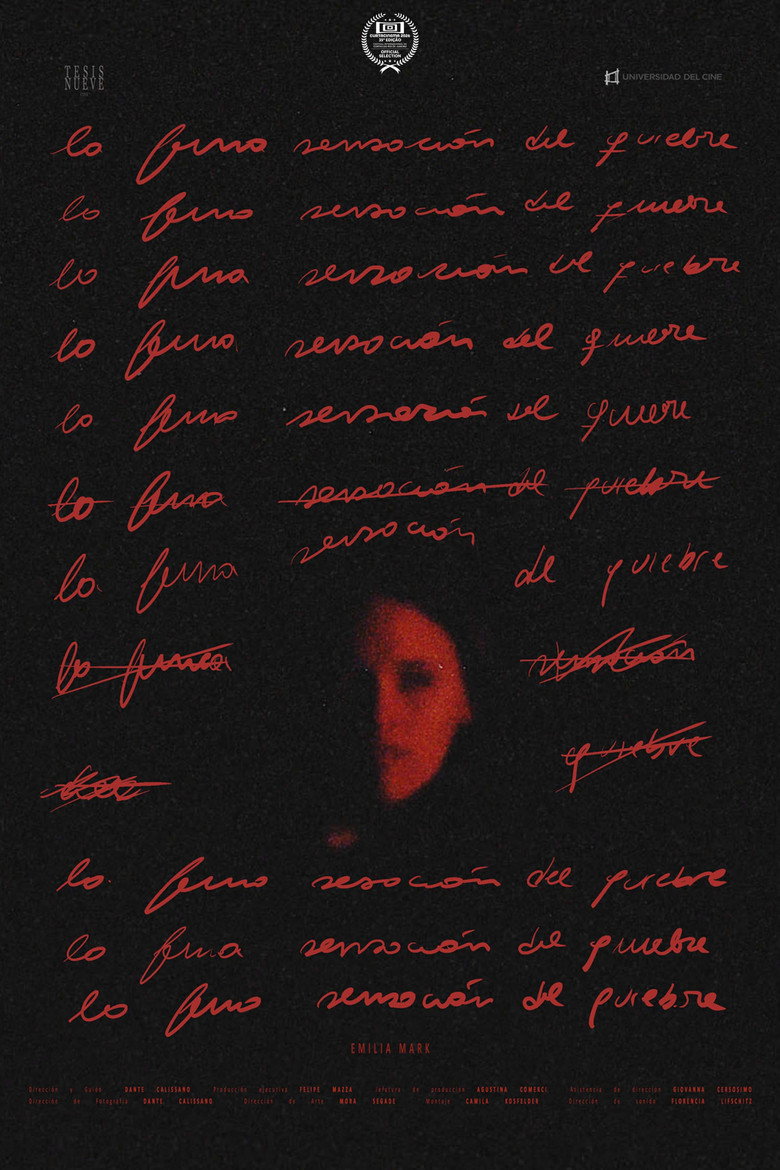 CURTACINEMA 2025
35ª EDIÇÃO
OFFICIAL
SELECTION
TESIS
NUEVE
UNIVERSIDAD DEL CINE
la fina sensación del quiebre
la fina sensación del quiebre
la fina sensación del quiebre
la fina sensación del quiebre
la fina sensación del quiebre
la fina sensación del quiebre
la fina sensación del quiebre
la fina sensación
quiebre
la fina sensación del quiebre
la fina sensación del quiebre
la fina sensación del quiebre
EMILIA MARK
Dirección y Guión DANTE CALISSANO Producción ejecutiva FELIPE MAZZA Jefatura de producción AGUSTINA COMERCI Asistencia de dirección GIOVANNA CERSOSIMO
Dirección de Fotografía DANTE CALISSANO Dirección de Arte MORA SEGADE Montaje CAMILA KOSFELDER Dirección de sonido FLORENCIA LIFSCHITZ